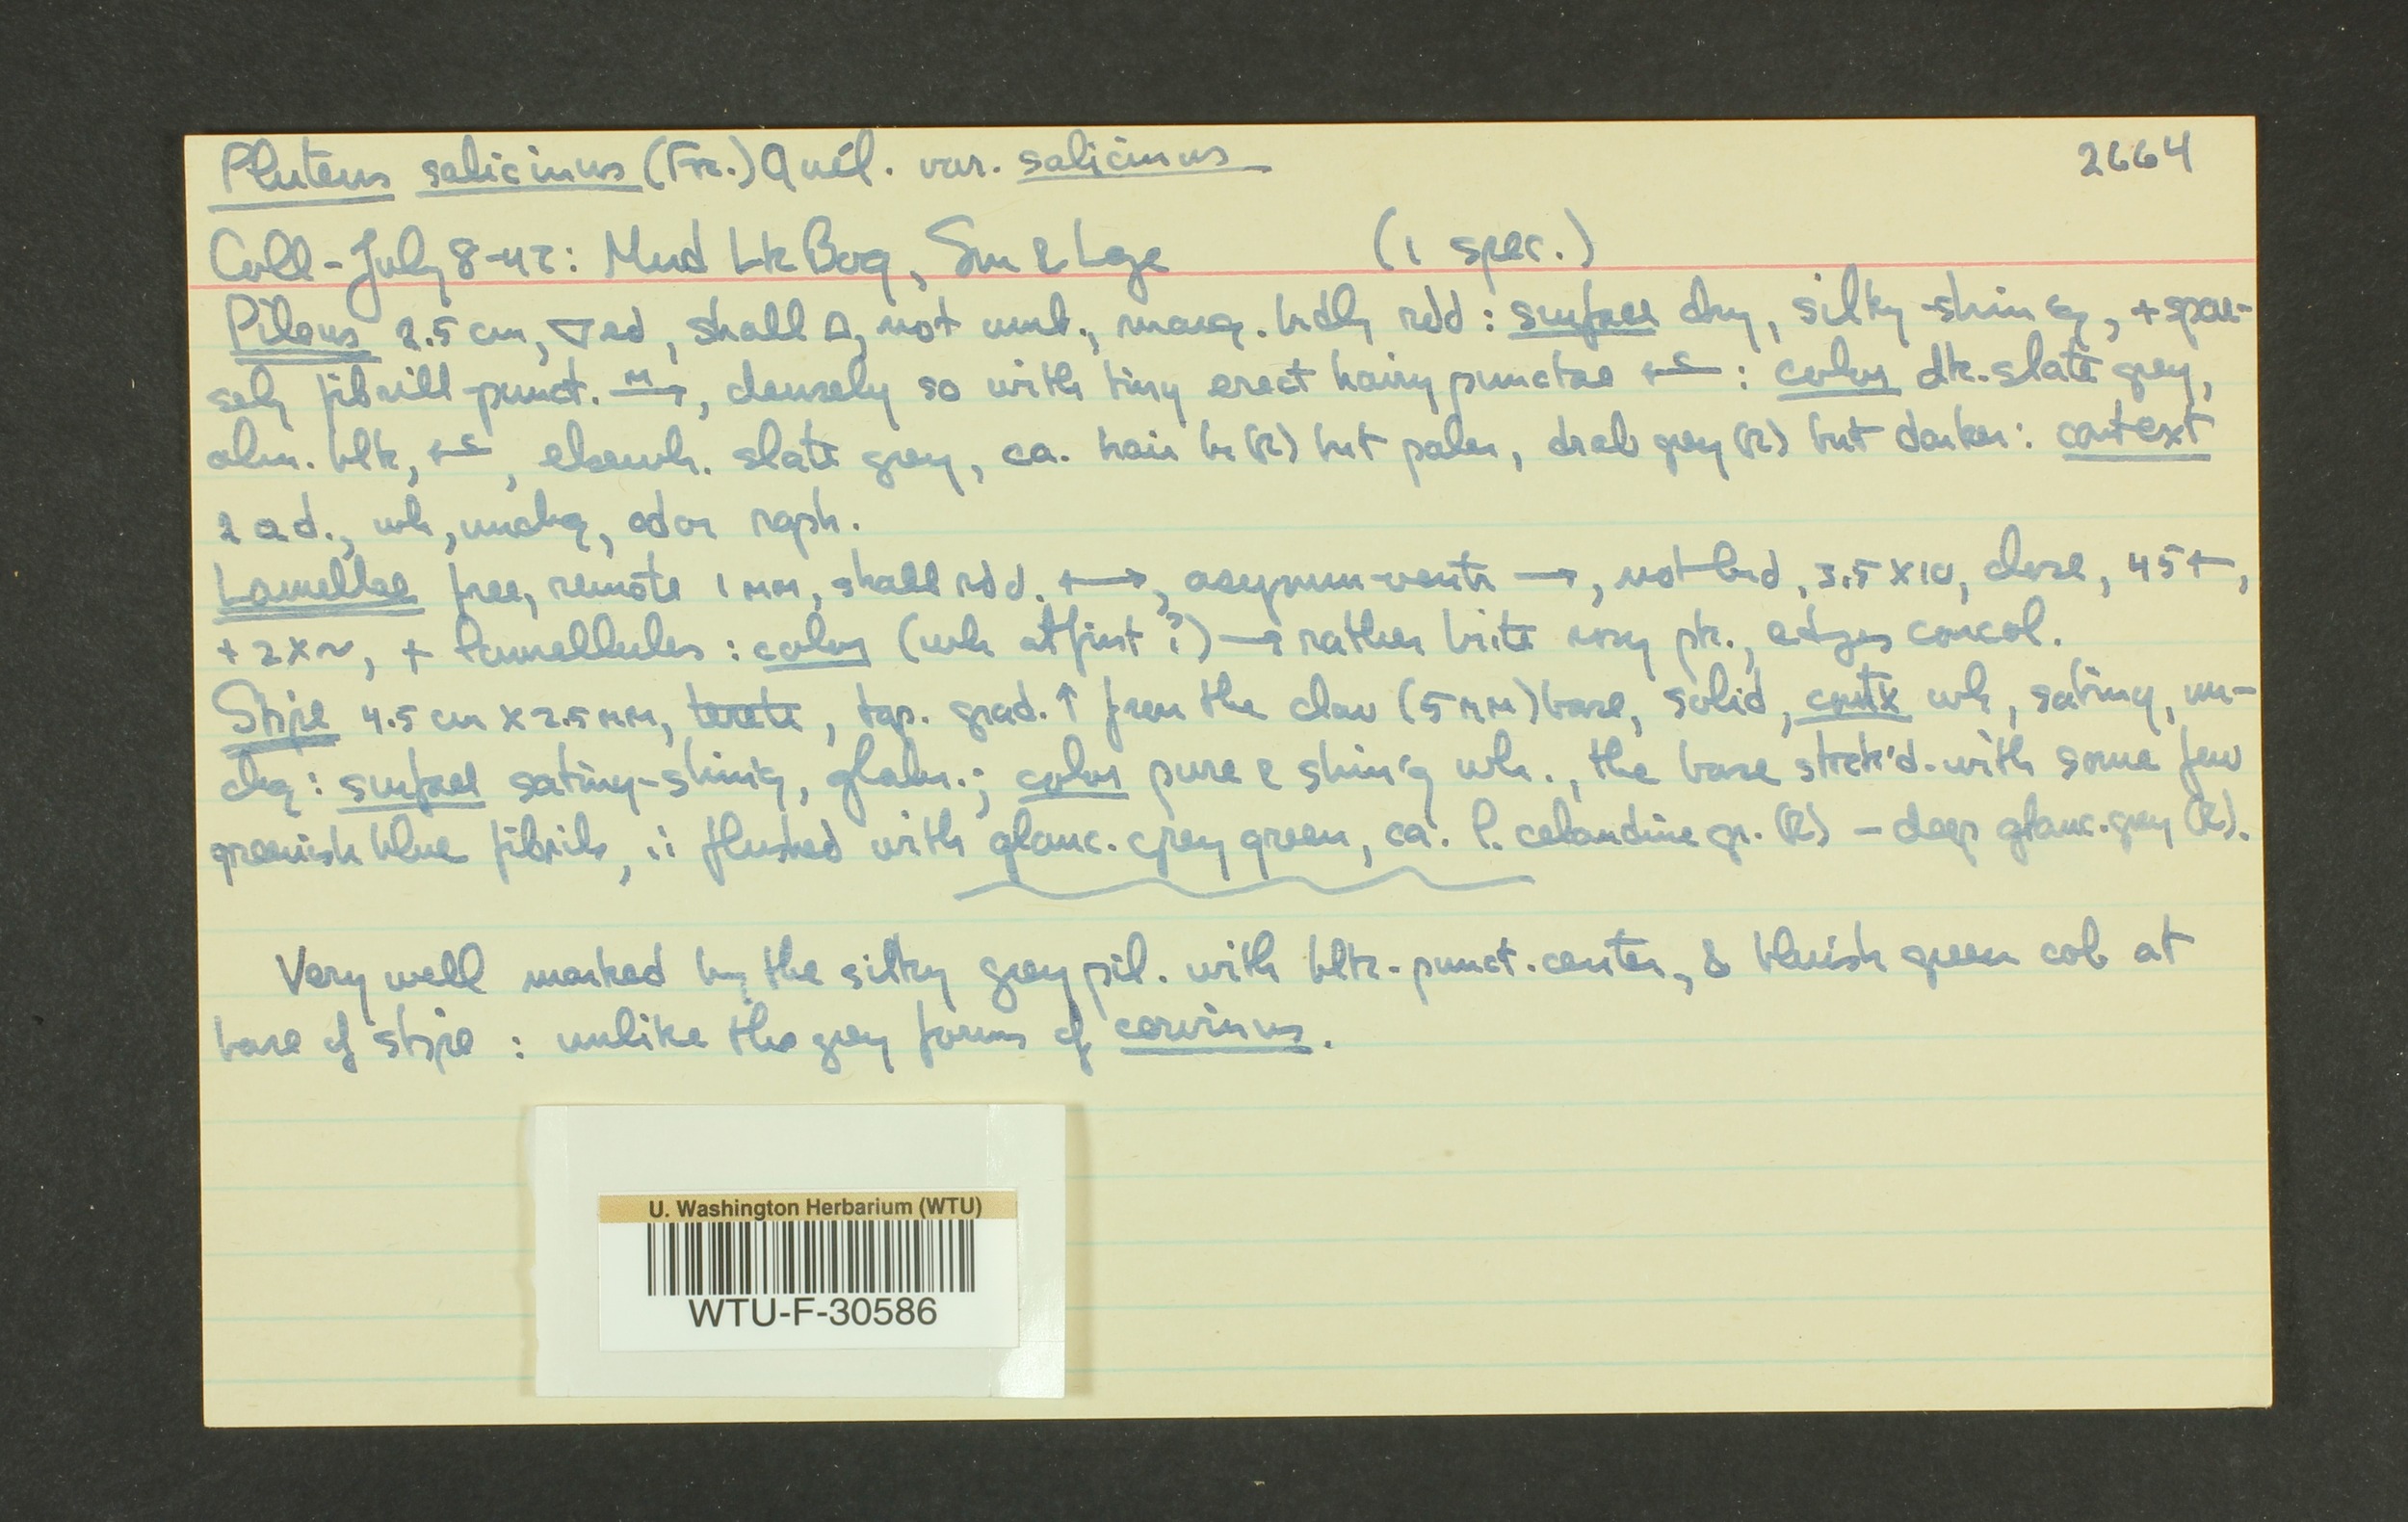 Pluteus salicinus (Fr.) Quél. var. salicinus 2664
Coll - July 8-42: Mud Lk Bog, Sm & (1 spec.)
Pileus 2.5 cm, shall not umb., marg. brdly rdd: surface dry, silky-shin'g, + spar-
sely fibrill-punct. M→, densely so with tiny erect hairy punctae ←c: color dk. slate grey,
alm. blk, ←c, elsewh. slate grey, ca. hair br (R) but paler, drab grey (R) but darker: context
wh, unchg, odor raph.
Lamellae free, remote 1 mm, shall rdd. ←→, asymm-ventr →, not brd, 3.5 x 10, close, 45+,
+ 2 x ~, + lamellules: color (wh at first?) → rather brite rosy pk., edges concol.
Stipe 4.5 cm x 2.5 mm, terete, tap. grad. ↑ from the clav (5 mm) base, solid, contx wh, satiny, un-
chg: surface satiny-shin'g, glabr.; color pure & shin'g wh., the base streak'd with some few
greenish blue fibrils, flushed with glauc. grey green, ca. l. celandine gr. (R) - deep glauc. grey (R).
Very well marked by the silky grey pil. with blk-punct. center, & bluish green col at
base of stipe: unlike the grey forms of cervinus.
U. Washington Herbarium (WTU)
WTU-F-30586